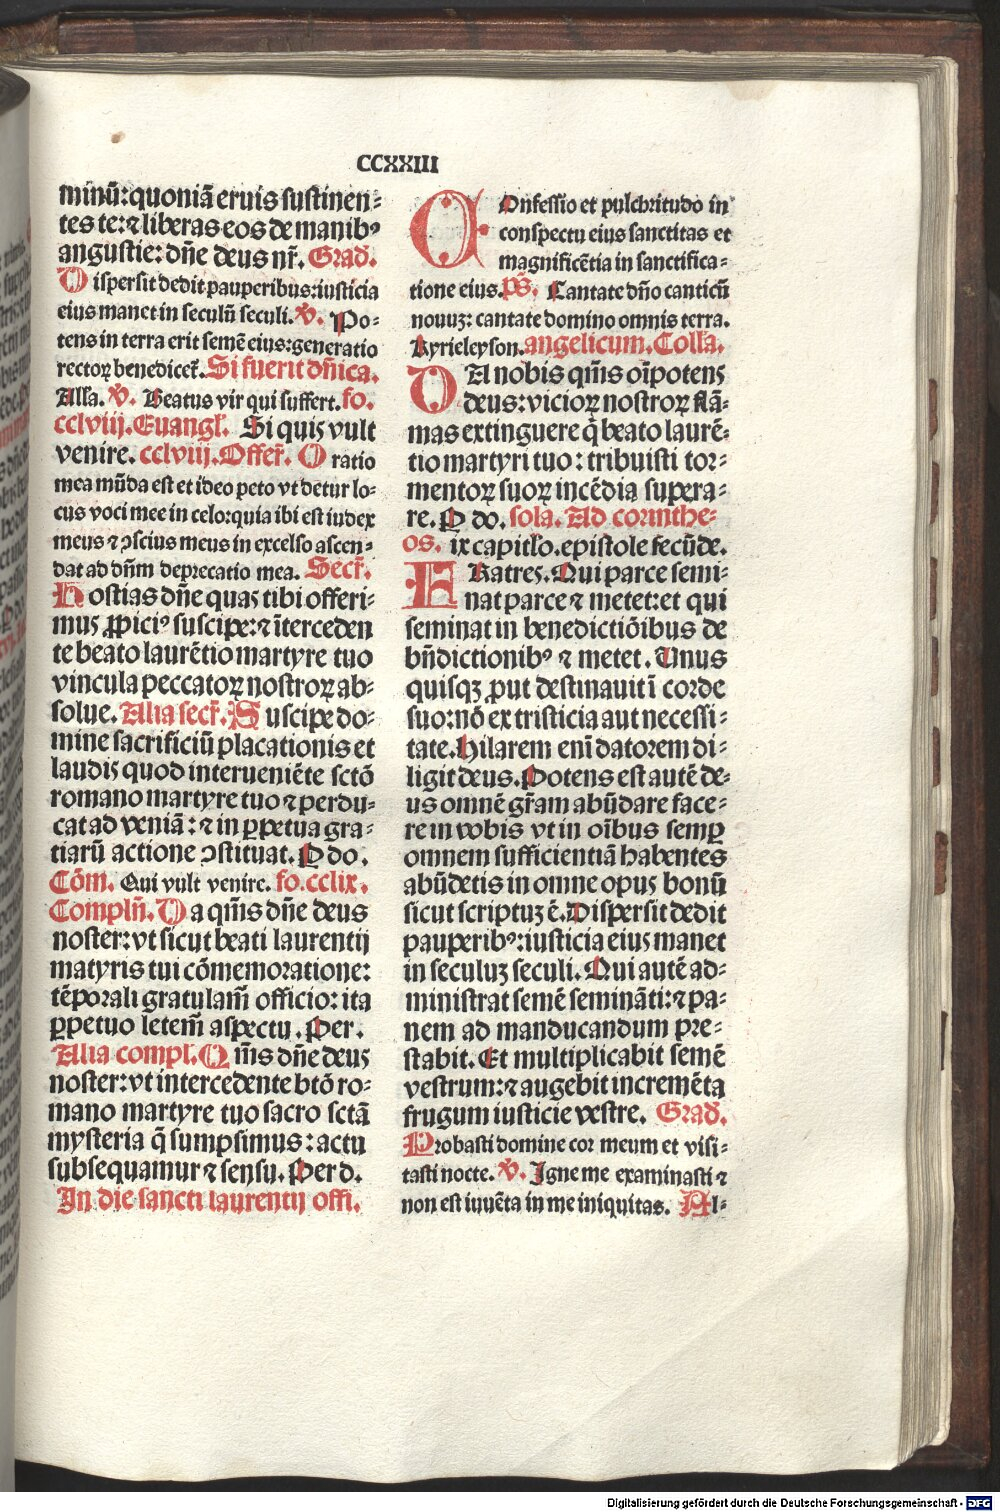 CCXXIII
minū:quoniā eruis sustinen-
tes te:⁊ liberas eos de manibꝰ
angustie: dn̄e deus nr̄. Grad̄.
Dispersit dedit pauperibus:iusticia
eius manet in seculū seculi. V̄. Po-
tens in terra erit semē eius:generatio
rectoꝝ benedicet̄. Si fuerit dn̄ica.
Alla. V̄. Beatus vir qui suffert. fo.
cclviij. Euangl̄. Si quis vult
venire. cclviij. Offer̄. Oratio
mea mūda est et ideo peto vt detur lo-
cus voci mee in celo:quia ibi est iudex
meus ⁊ ꝯscius meus in excelso ascen-
dat ad dn̄m deprecatio mea. Secr̄.
Hostias dn̄e quas tibi offeri-
mus ꝓpiciꝰ suscipe:⁊ īterceden
te beato laurētio martyre tuo
vincula peccatoꝝ nostroꝝ ab-
solue. Alia secr̄. Suscipe do-
mine sacrificiū placationis et
laudis quod interueniēte sctō
romano martyre tuo ⁊ perdu-
cat ad veniā: ⁊ in ꝑpetua gra-
tiarū actione ꝯstituat. P do.
Cōm. Qui vult venire. fo. cclix.
Compln̄. Da qm̄s dn̄e deus
noster: vt sicut beati laurentij
matyris tui cōmemoratione:
tēporali gratulam̄ officio: ita
ꝑpetuo letem̄ aspectu. Per.
Alia compl̄. Qm̄s dn̄e deus
noster: vt intercedente btō ro-
mano martyre tuo sacro sctā
mysteria q̄ sumpsimus: actu
subsequamur ⁊ sensu. Per d.
In die sancti laurentij offi.
COnfessio et pulchritudo in
conspectu eius sanctitas et
magnificētia in sanctifica-
tione eius. Ps̄. Cantate dn̄o canticū
nouuꝫ: cantate domino omnis terra.
Kyrieleyson. angelicum. Colla.
DA nobis qm̄s oīpotens
deus: vicioꝝ nostroꝝ flā-
mas extinguere q̄ beato laurē-
tio martyri tuo: tribuisti tor-
mentoꝝ suoꝝ incēdia supera-
re. P do. sola. Ad corinthe-
os. ix capitl̄o. epistole secūde.
FRatres. Qui parce semi-
nat parce ⁊ metet: et qui
seminat in benedictiōibus de
bn̄dictionibꝰ ⁊ metet. Unus
quisqꝫ ꝓut destinauit ī corde
suo: nō ex tristicia aut necessi-
tate. Hilarem enī datorem di-
ligit deus. Potens est autē de-
us omnē gr̄am abūdare face-
re in vobis vt in oībus semꝑ
omnem sufficientiā habentes
abūdetis in omne opus bonū
sicut scriptuꝫ ē. Dispersit dedit
pauperibꝰ: iusticia eius manet
in seculuꝫ seculi. Qui autē ad-
ministrat semē semināti: ⁊ pa-
nem ad manducandum pre-
stabit. Et multiplicabit semē
vestrum: ⁊ augebit incremēta
frugum iusticie vestre. Grad̄.
Probasti domine cor meum et visi-
tasti nocte. V̄. Igne me examinasti ⁊
non est iuuēta in me iniquitas. Al-
Digitalisierung gefördert durch die Deutsche Forschungsgemeinschaft - DFG